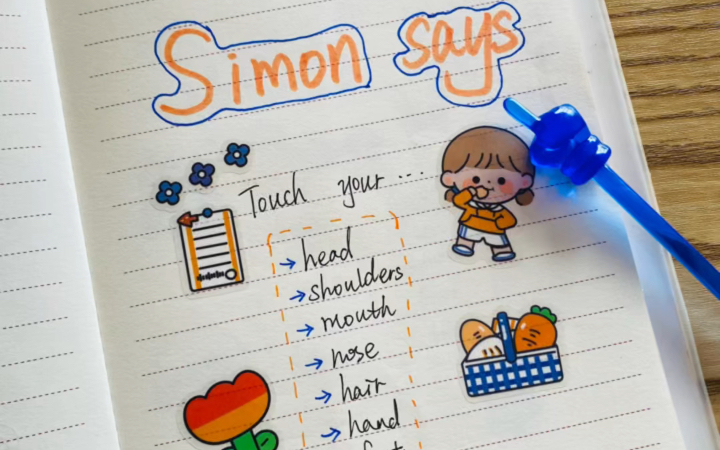 Simon says
Touch your ...
→ head
→ shoulders
→ mouth
→ nose
→ hair
→ hand